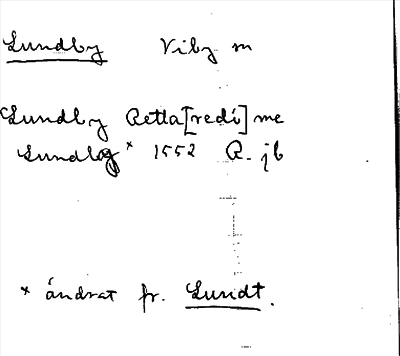 Lundby Viby sn
Lundby Retta[redi] me
Lundby* 1552 R. jb
* ändrat fr. Lundt.